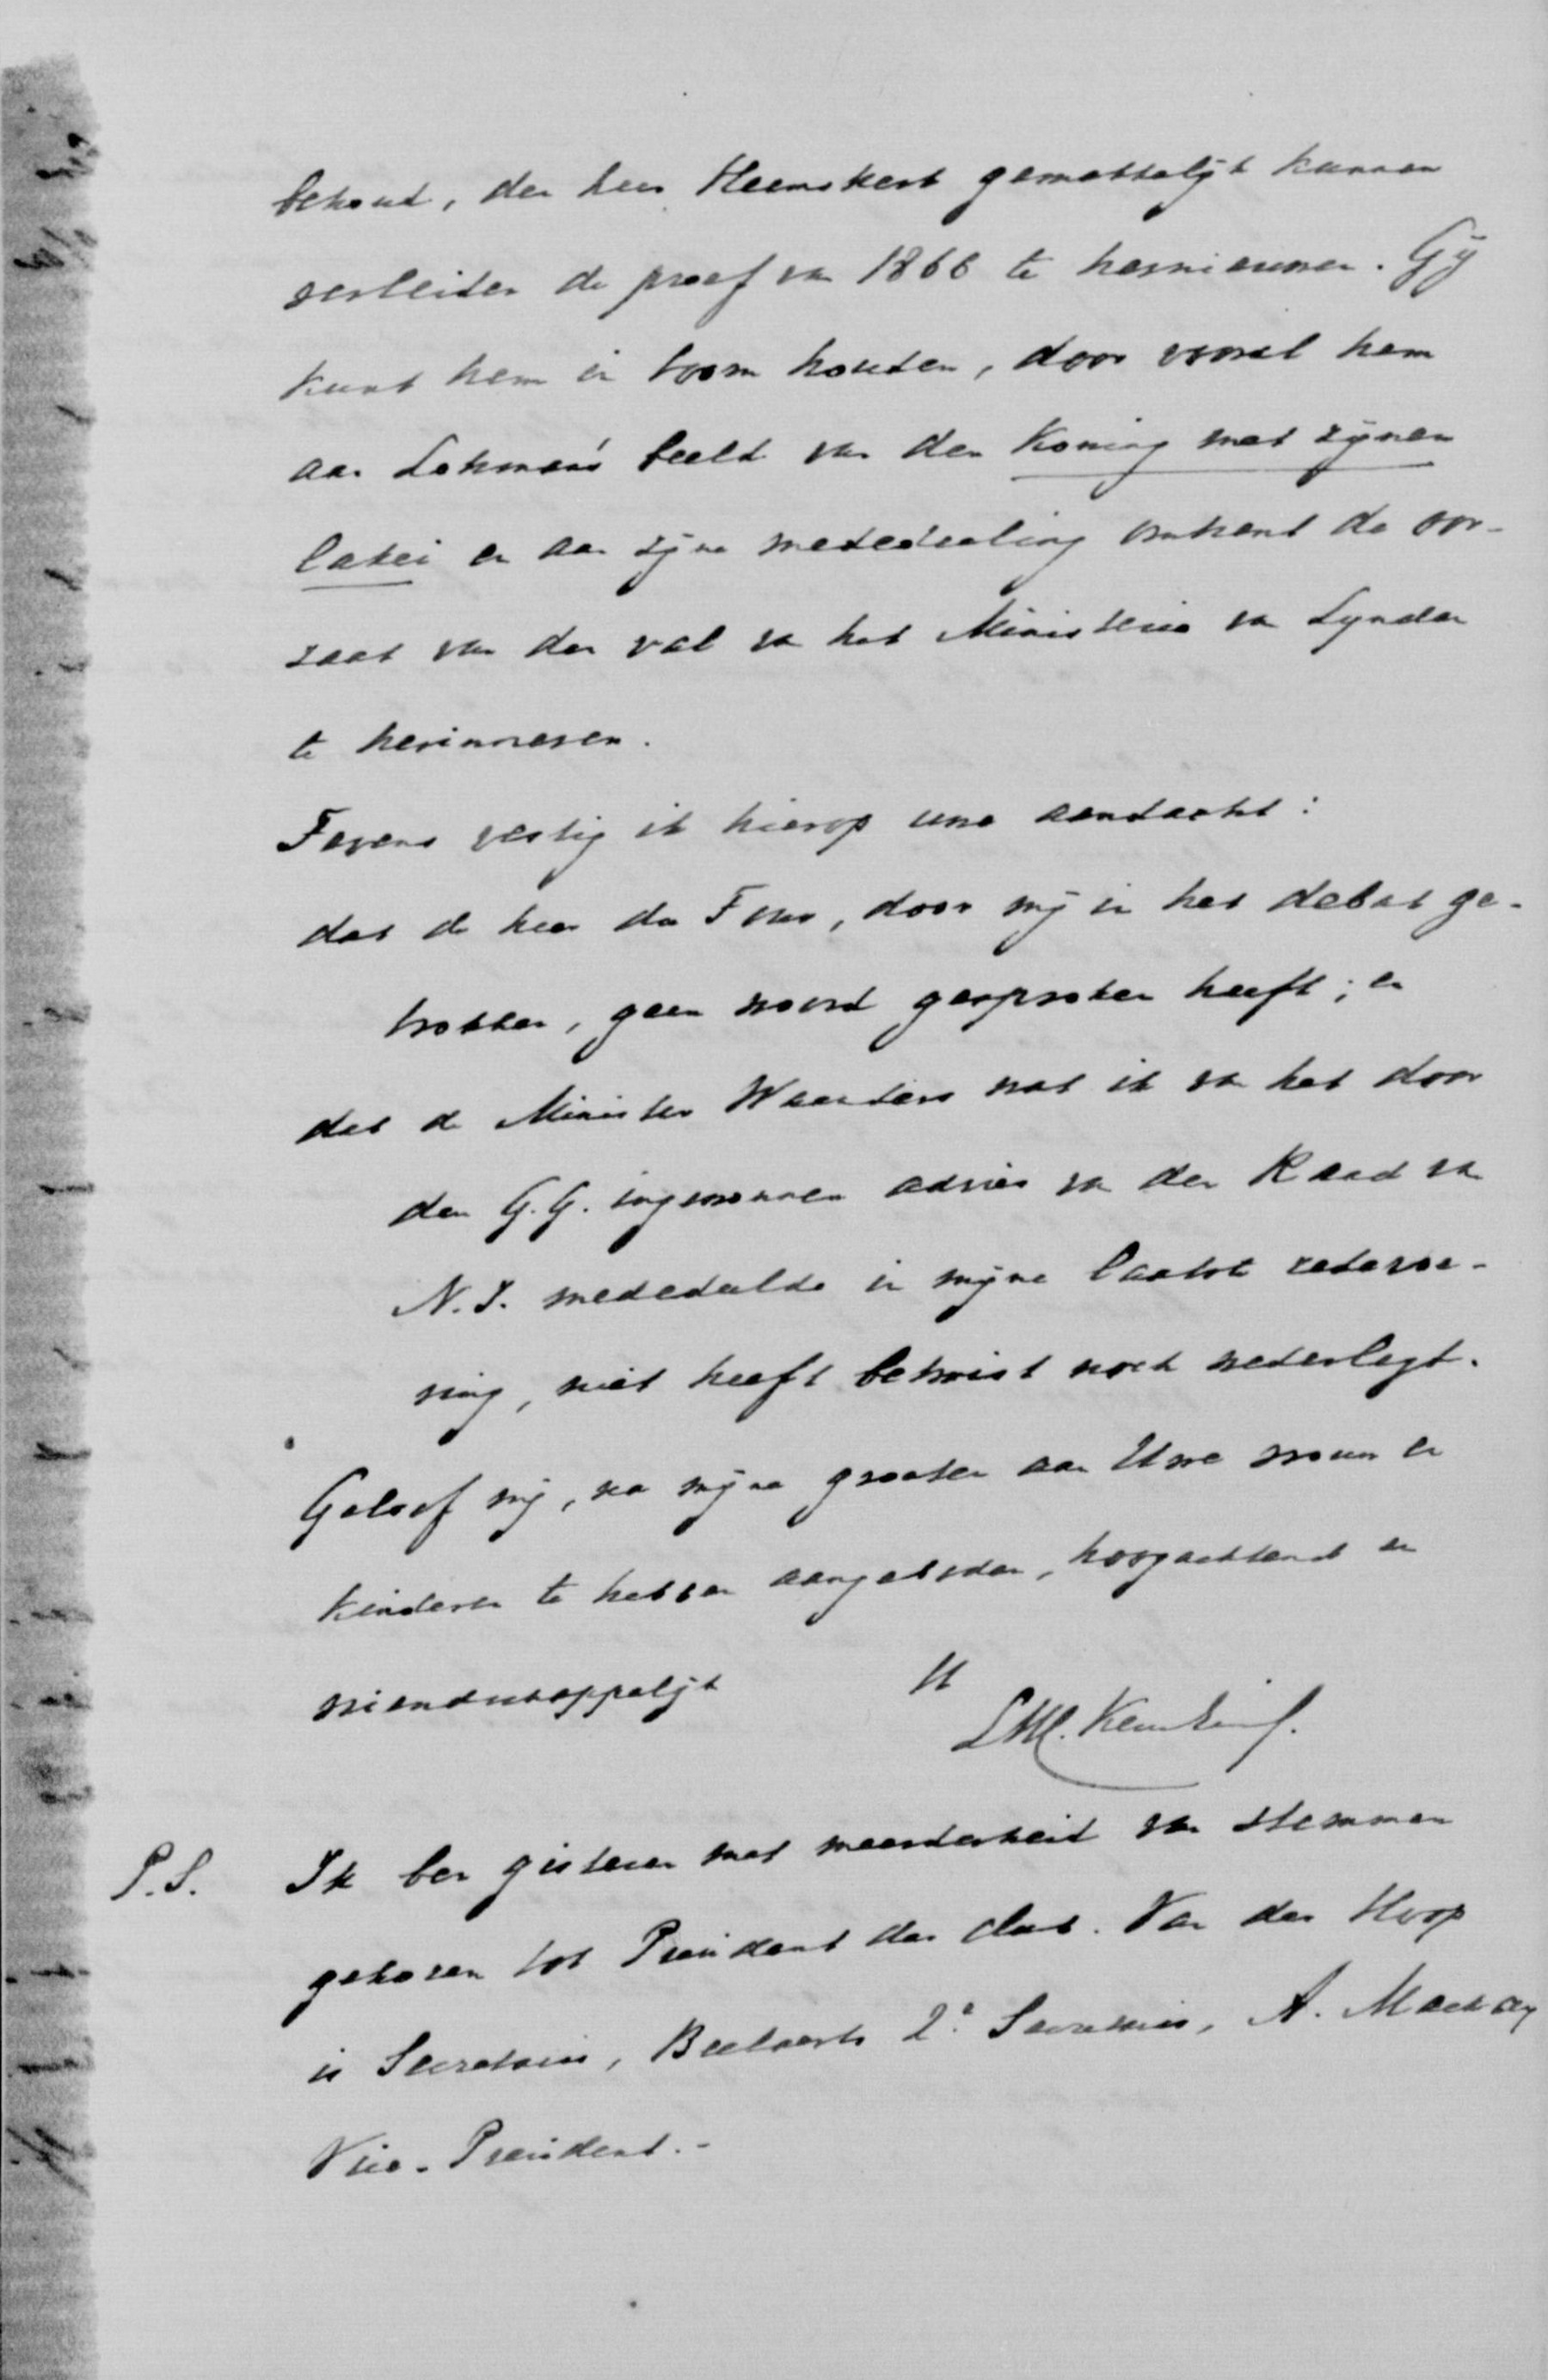 behoud, den heer Heemskerk gemakkelijk kunnen
verleiden de proef van 1866 te hernieuwen. Gij
kunt hem in toom houden, door vooral hem
aan Lohman's beeld van den Koning met zijnen
lakei en aan zijne mededeeling omtrent de oor-
zaak van den val van het Ministerie van Lynden
te herinneren.
Tevens vestig ik hierop uwe aandacht:
dat de heer du Tour, door mij in het debat ge-
trokken, geen woord gesproken heeft; en
dat de Minister Wat ik van het door
den G.G. ingewonnen advies van den Raad van
N.I. mededeelde in mijne laatste redevoe-
ring, niet heeft betwist noch wederlegd.
Geloof mij, na mijne groeten aan Uwe vrouw en
kinderen te hebben aangeboden, hoogachtend en
vriendschappelijk U
LWC. Keuchenius.
P.S. Ik ben gisteren met meerderheid van stemmen
gekozen tot President der club. Van der Hoop
is Secretaris, Beelaerts 2e Secretaris, A. Mackay
Vice-President.-